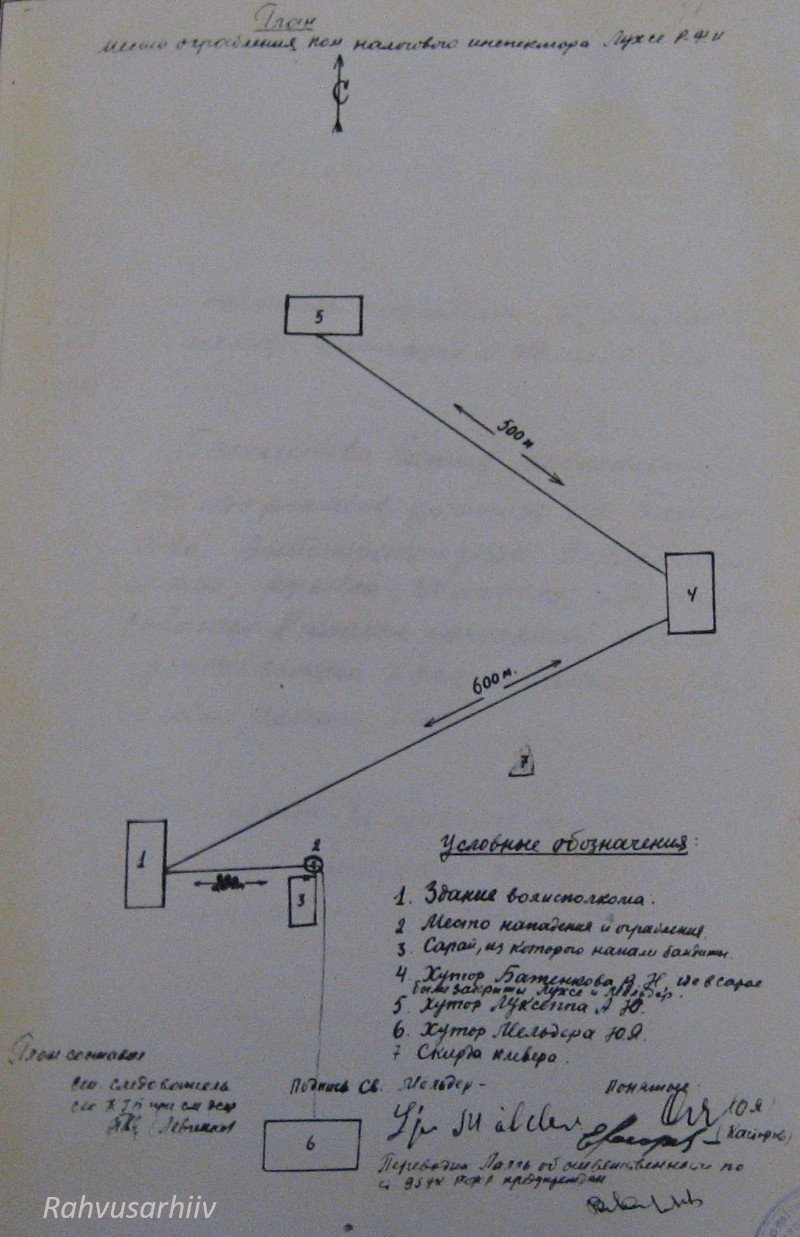 План
место ограбления пом налогового инспектора Лухсе Р.Ф.
С
5
500 м
4
600 м.
7
1
2
3
Условные обозначения:
1. Здание волисполкома.
2 Место нападения и ограбления
3. Сарай, из которого напали бандиты
4 Хутор Баженкова А Н, где в сарае
были закрыты Лухсе и Мельдер.
5. Хутор Луксеппа А Ю.
6. Хутор Мельдера Ю Я.
7 Скирда клевера.
План составил
следователь
Подпись Св. Мельдер -
Понятые:
6
Переводчик об ответственности по
ст 95 УК РСФСР предупрежден
Rahvusarhiiv